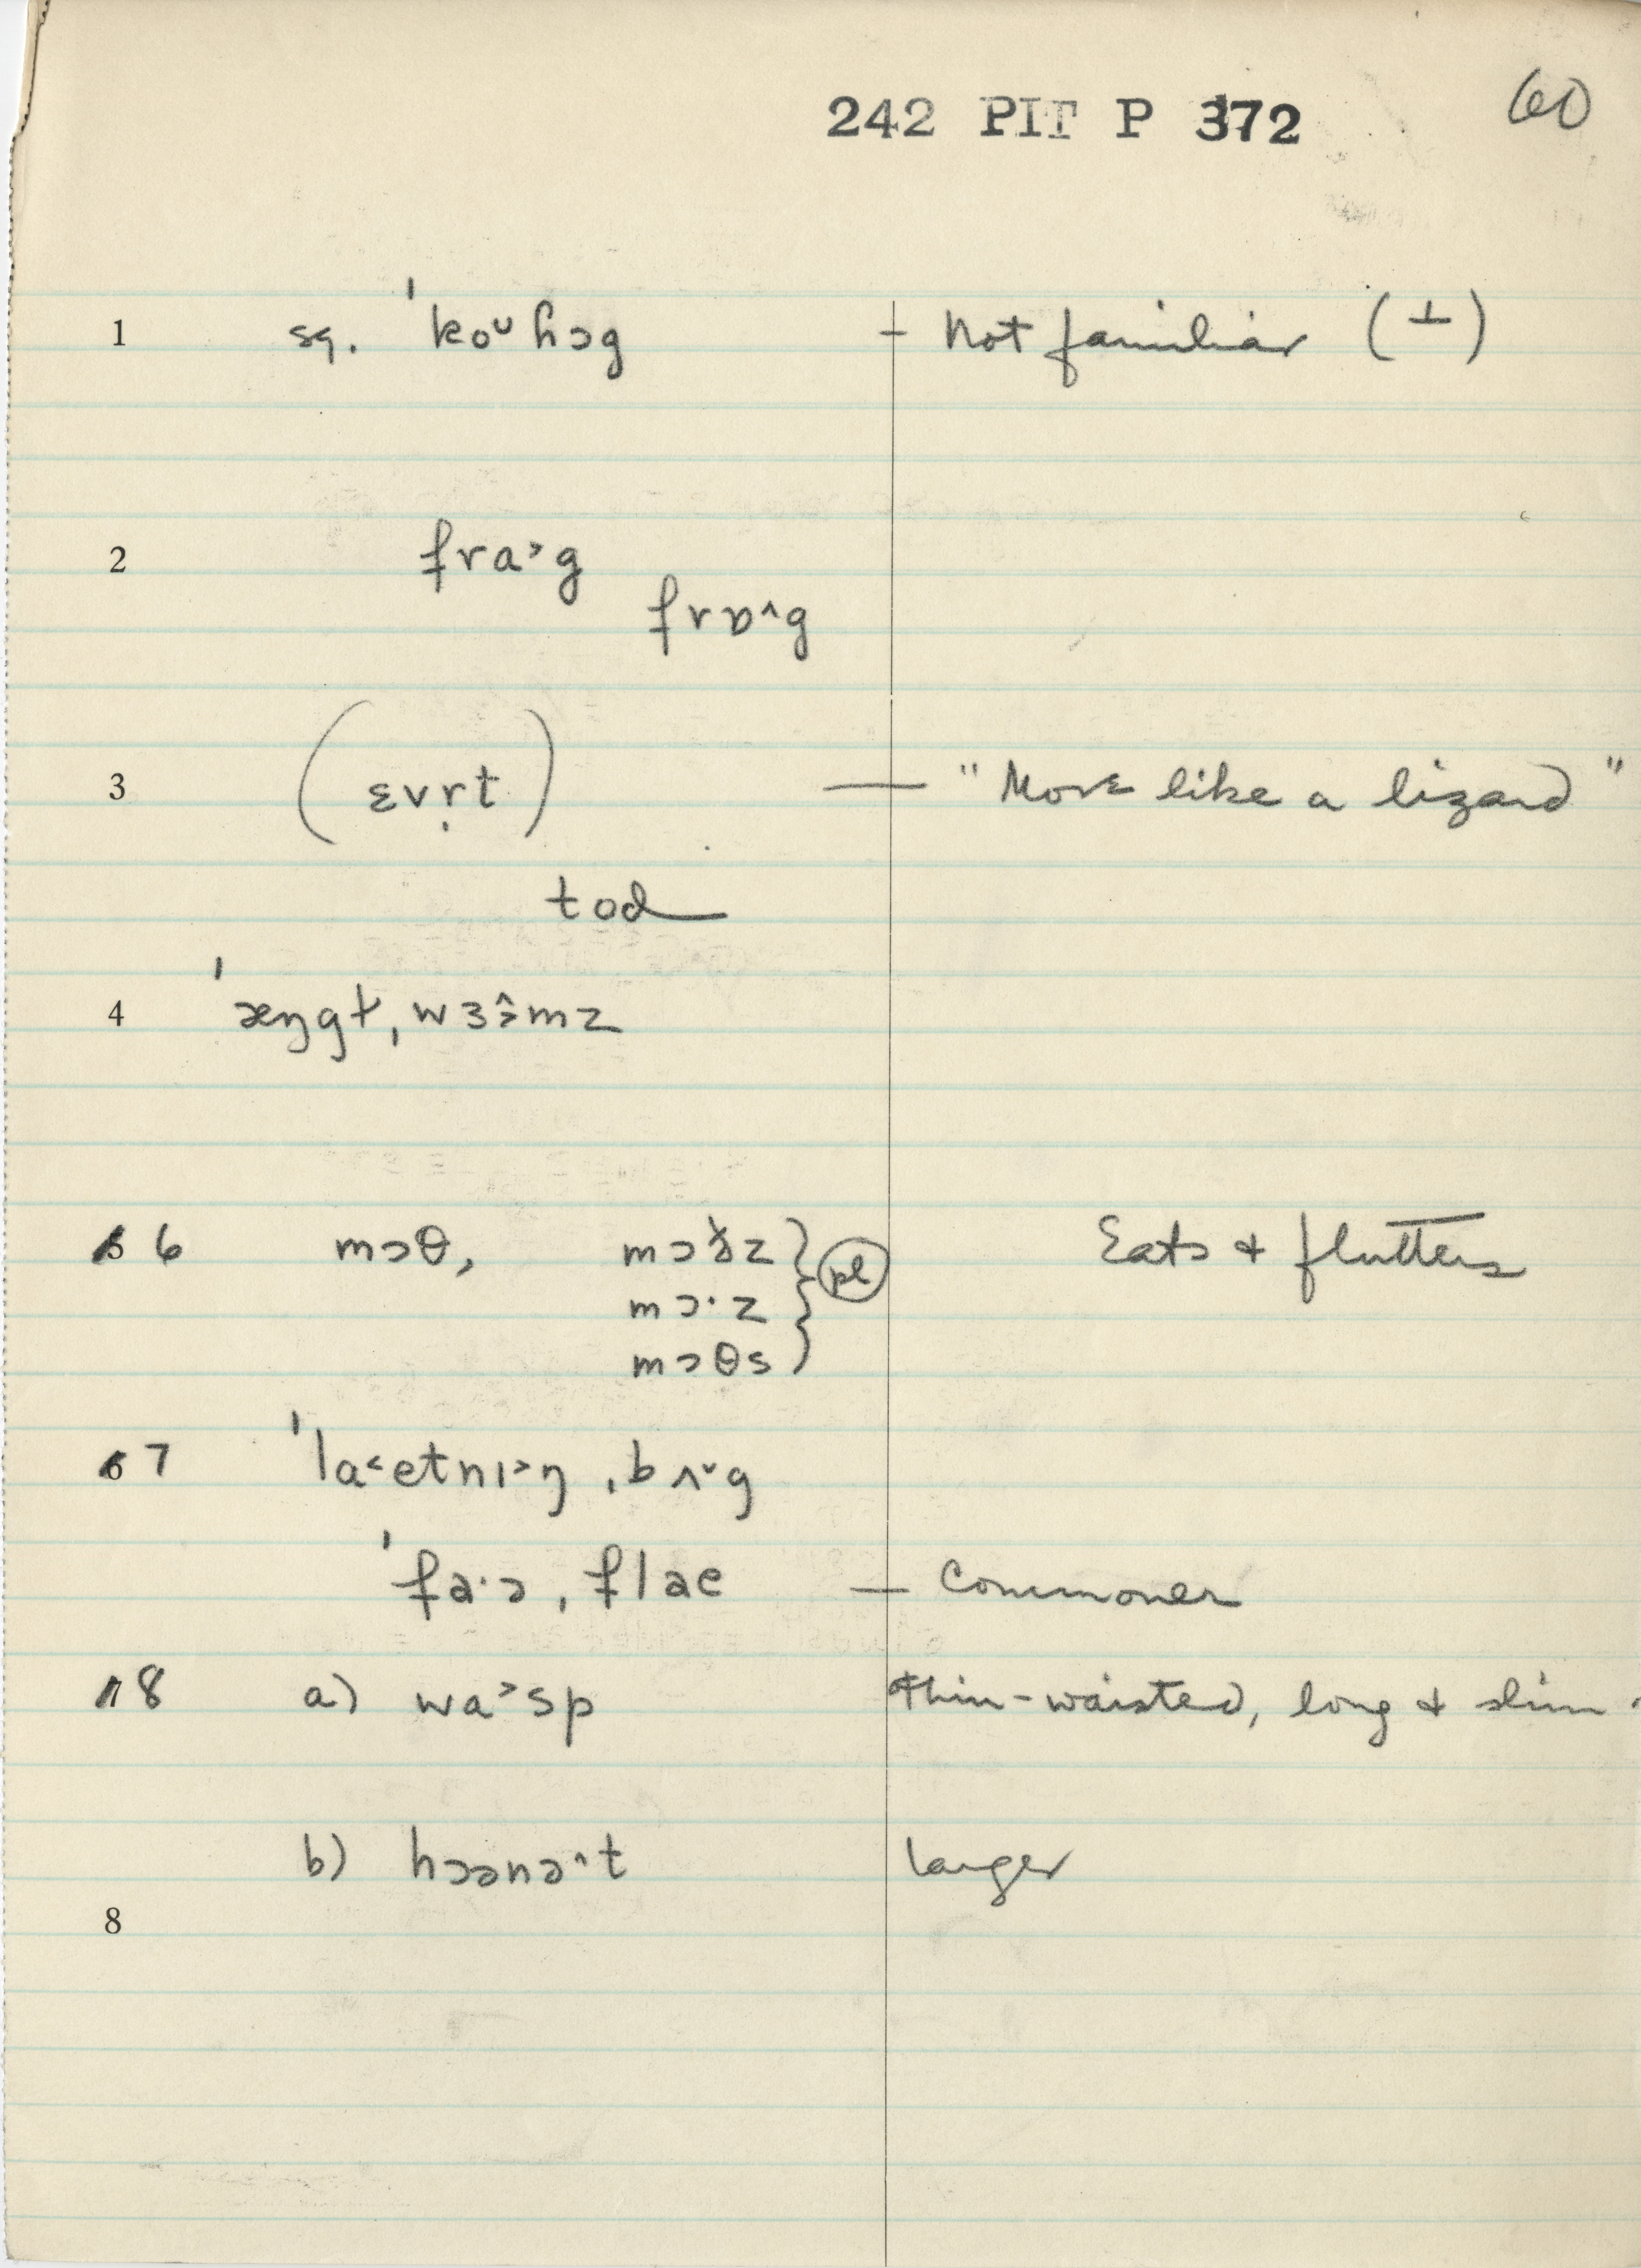 242 PIT P 372 60
1 sq. ˈkoᵕɦɔg — Not familiar (⊥)
2 fra˃g
frɒ˄g
3 (ɛvṛt) — "Move like a lizard"
tod
4 ˈæŋgɫˌwɜ˄˃mz
6 mɔθ, mɔð̆z } pl Eats & flutters
mɔ·z
mɔθs
7 ˈla˂etnɪ˃ŋˌbʌ˅g
ˈfa·əˌflae — Commoner
8 a) wa˃sp thin-waisted, long & slim.
b) hɔənə˄t larger
8